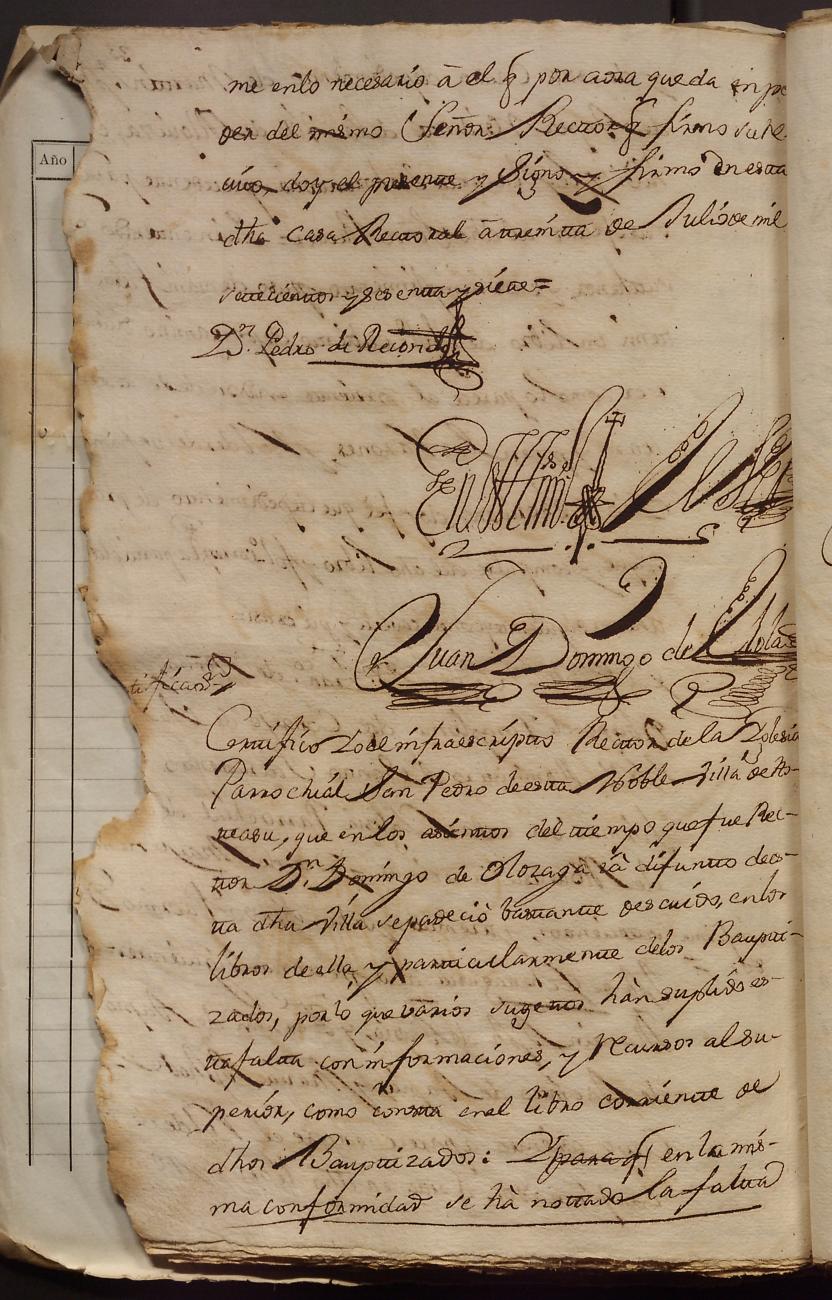 Año
me enlo necesario à el q̃ por aora queda en po
der del mismo Señor Rector q̃ firmo su re
civo, doy el presente y signo y firmo en esta
dha Casa Rectoral à treinta de Julio de mil
setecientos y sesenta y siete=
Dn. Pedro de Recondo
En testimº de
Juan Domingo de
tificazon
Certifico Yo el infraescripto Rector de la Iglesia
Parrochial San Pedro de esta Noble Villa de As-
teasu, que en los del tiempo que fue Rec-
tor Dn. Domingo de Olozaga ià difunto de es-
ta dha Villa se padeciò bastante descuido, en los
libros de ella y particularmente delos Baupti-
zados, por lo que varios sugetos hàn suplido es-
ta falta con informaciones, y recursos al su-
perior, como consta en el libro corriente de
dhos Bauptizados: Y para q̃ en la mis-
ma conformidad se hà nottado la falta